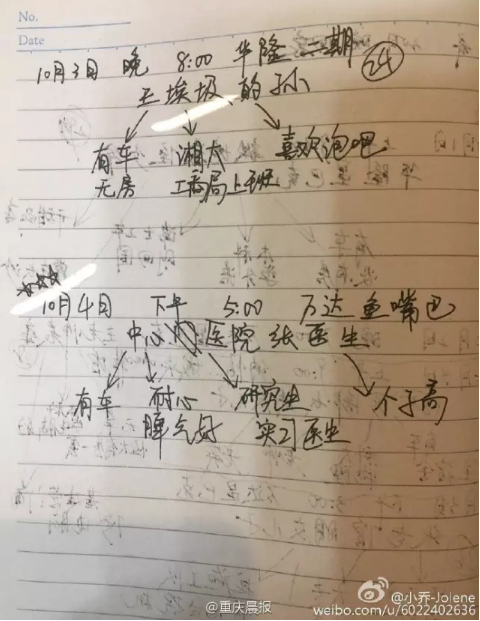 No.
Date
10月3日 晚 8:00 华隆二期 24
王埃圾 的孙
有车 湘大 喜欢泡吧
无房 工商局上班
☆☆☆
10月4日 下午 5:00 万达鱼嘴巴
中心 医院 张医生
有车 耐心 研究生 个子高
脾气好 实习医生
@重庆晨报
@小乔-Jolene
weibo.com/u/6022402636